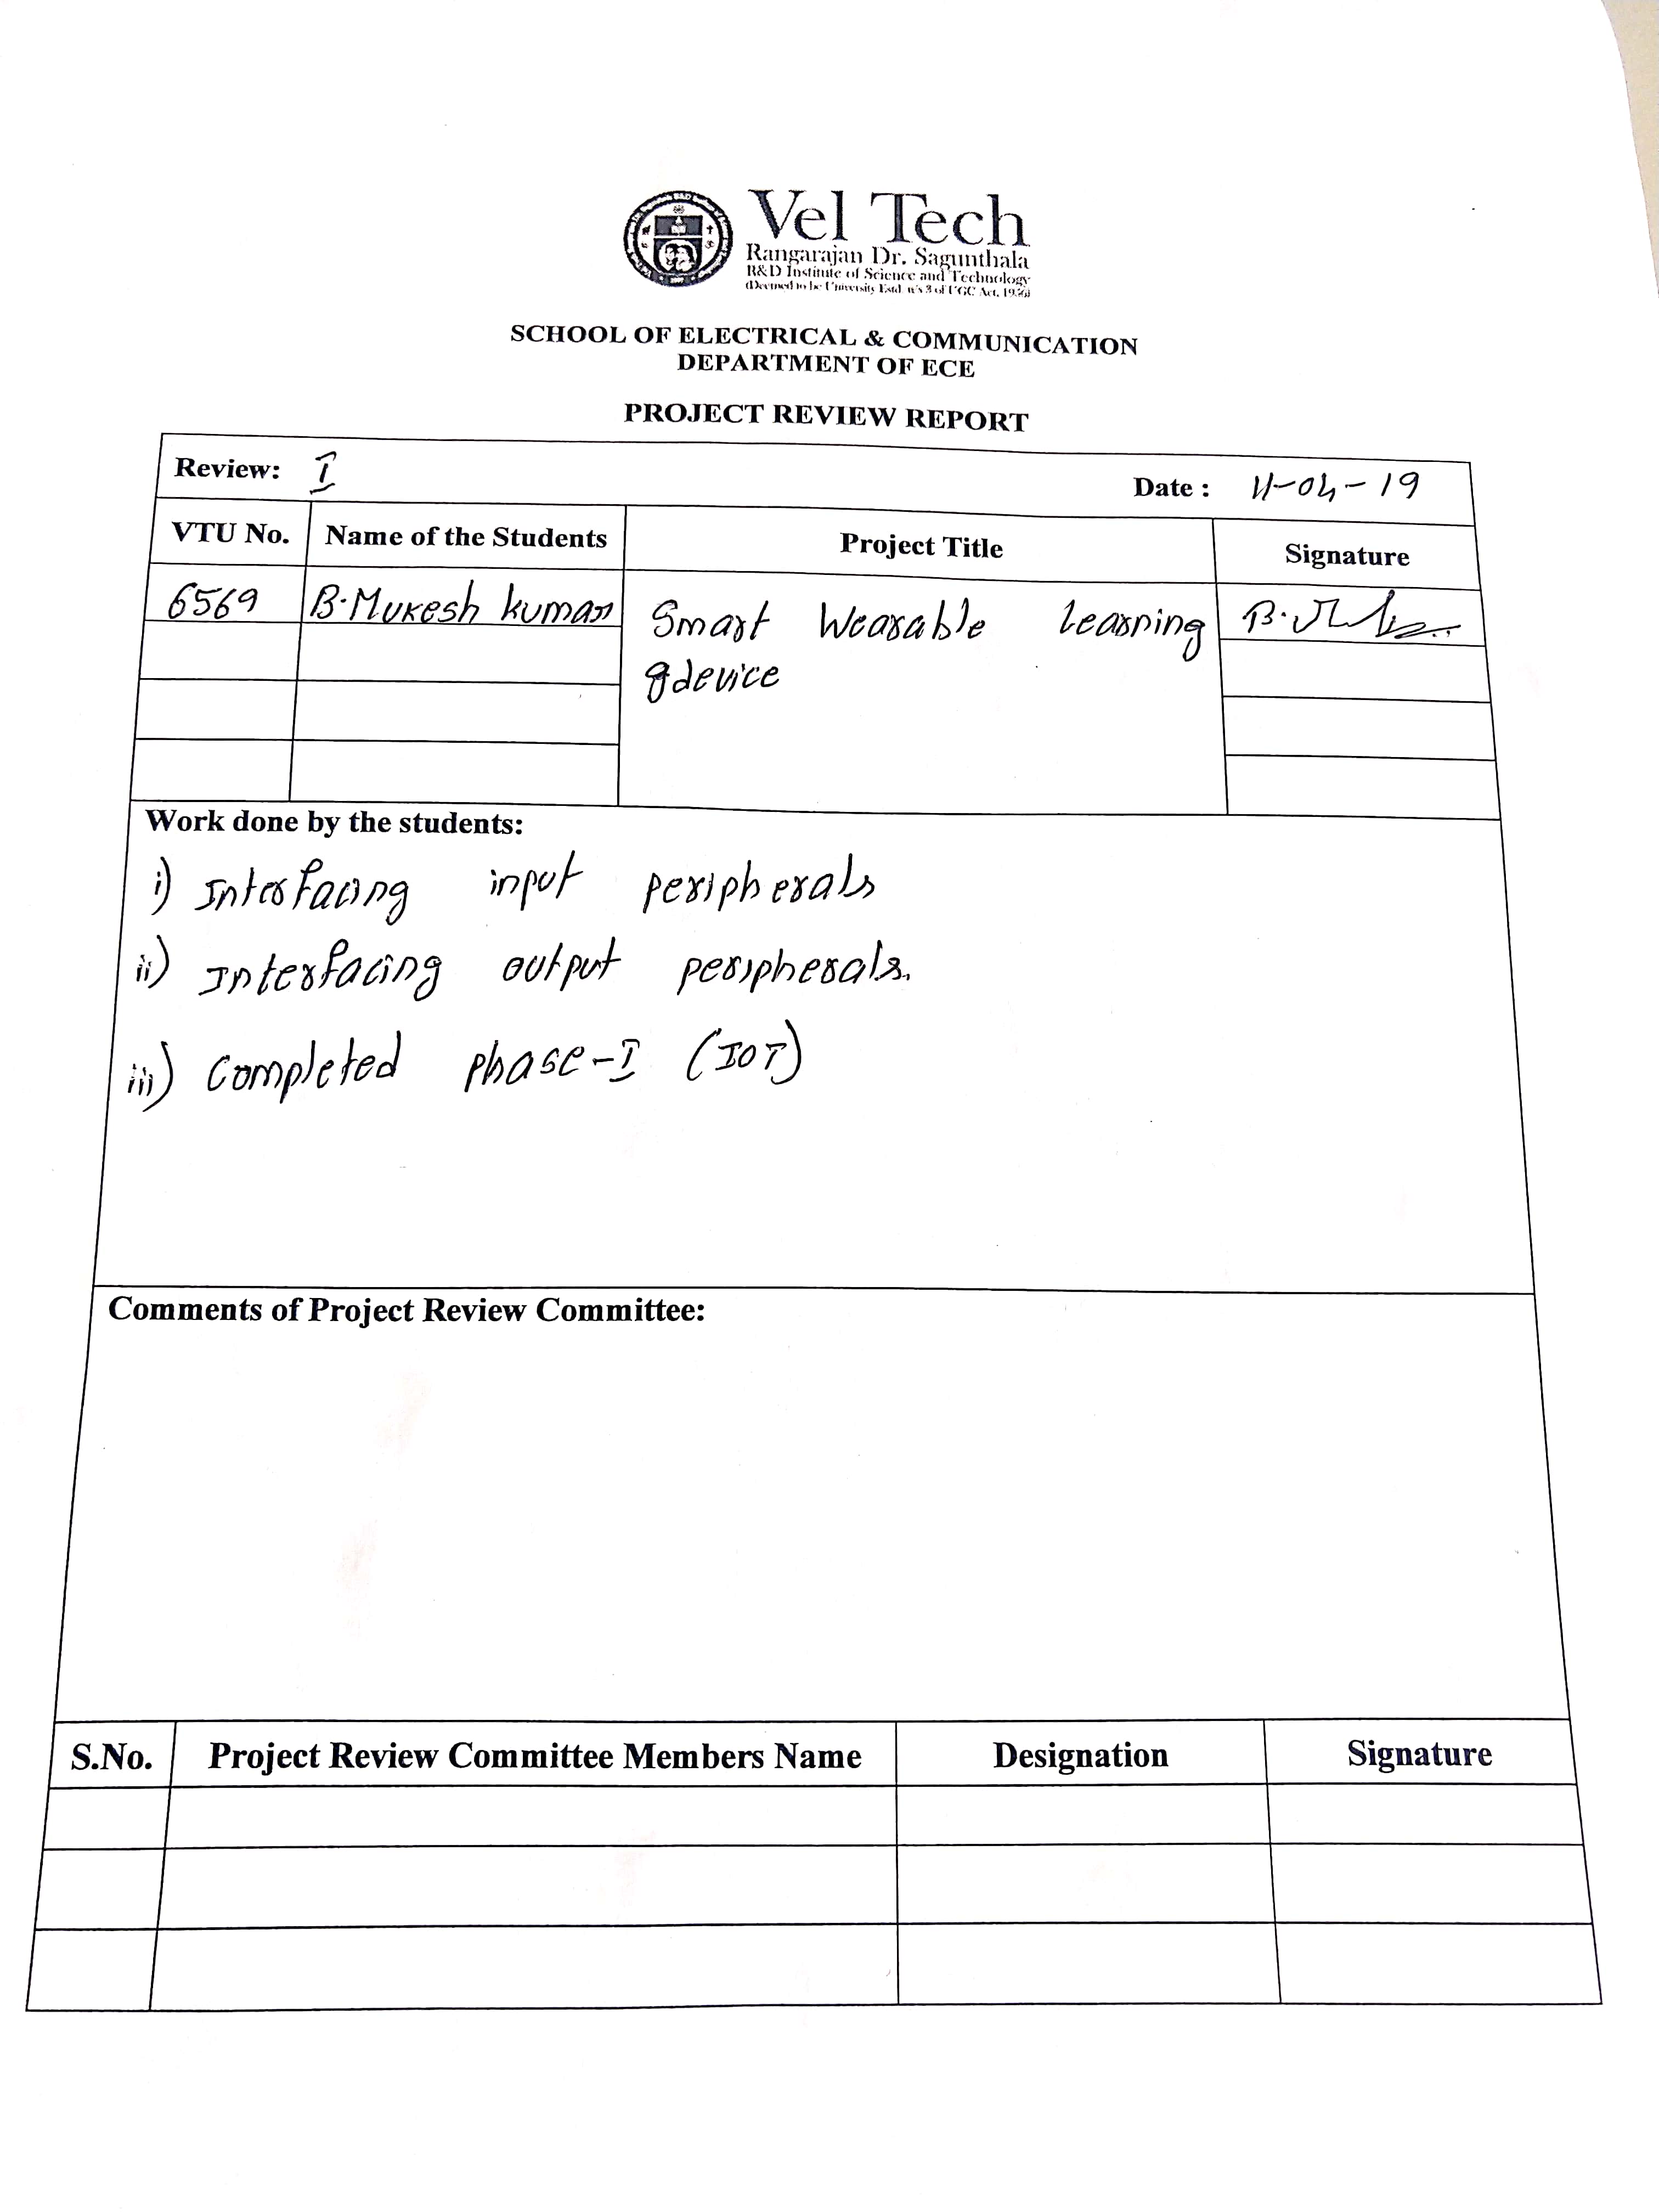 Vel Tech
Rangarajan Dr. Sagunthala
R&D Institute of Science and Technology
(Deemed to be University Estd. u/s 3 of UGC Act, 1956)
SCHOOL OF ELECTRICAL & COMMUNICATION
DEPARTMENT OF ECE
PROJECT REVIEW REPORT
Review: I Date : 11-04-19
VTU No. Name of the Students Project Title Signature
6569 B.Mukesh kumar Smart Wearable learning
device
Work done by the students:
i) Interfacing input peripherals
ii) Interfacing output peripherals.
iii) Completed phase-I (IOT)
Comments of Project Review Committee:
S.No. Project Review Committee Members Name Designation Signature